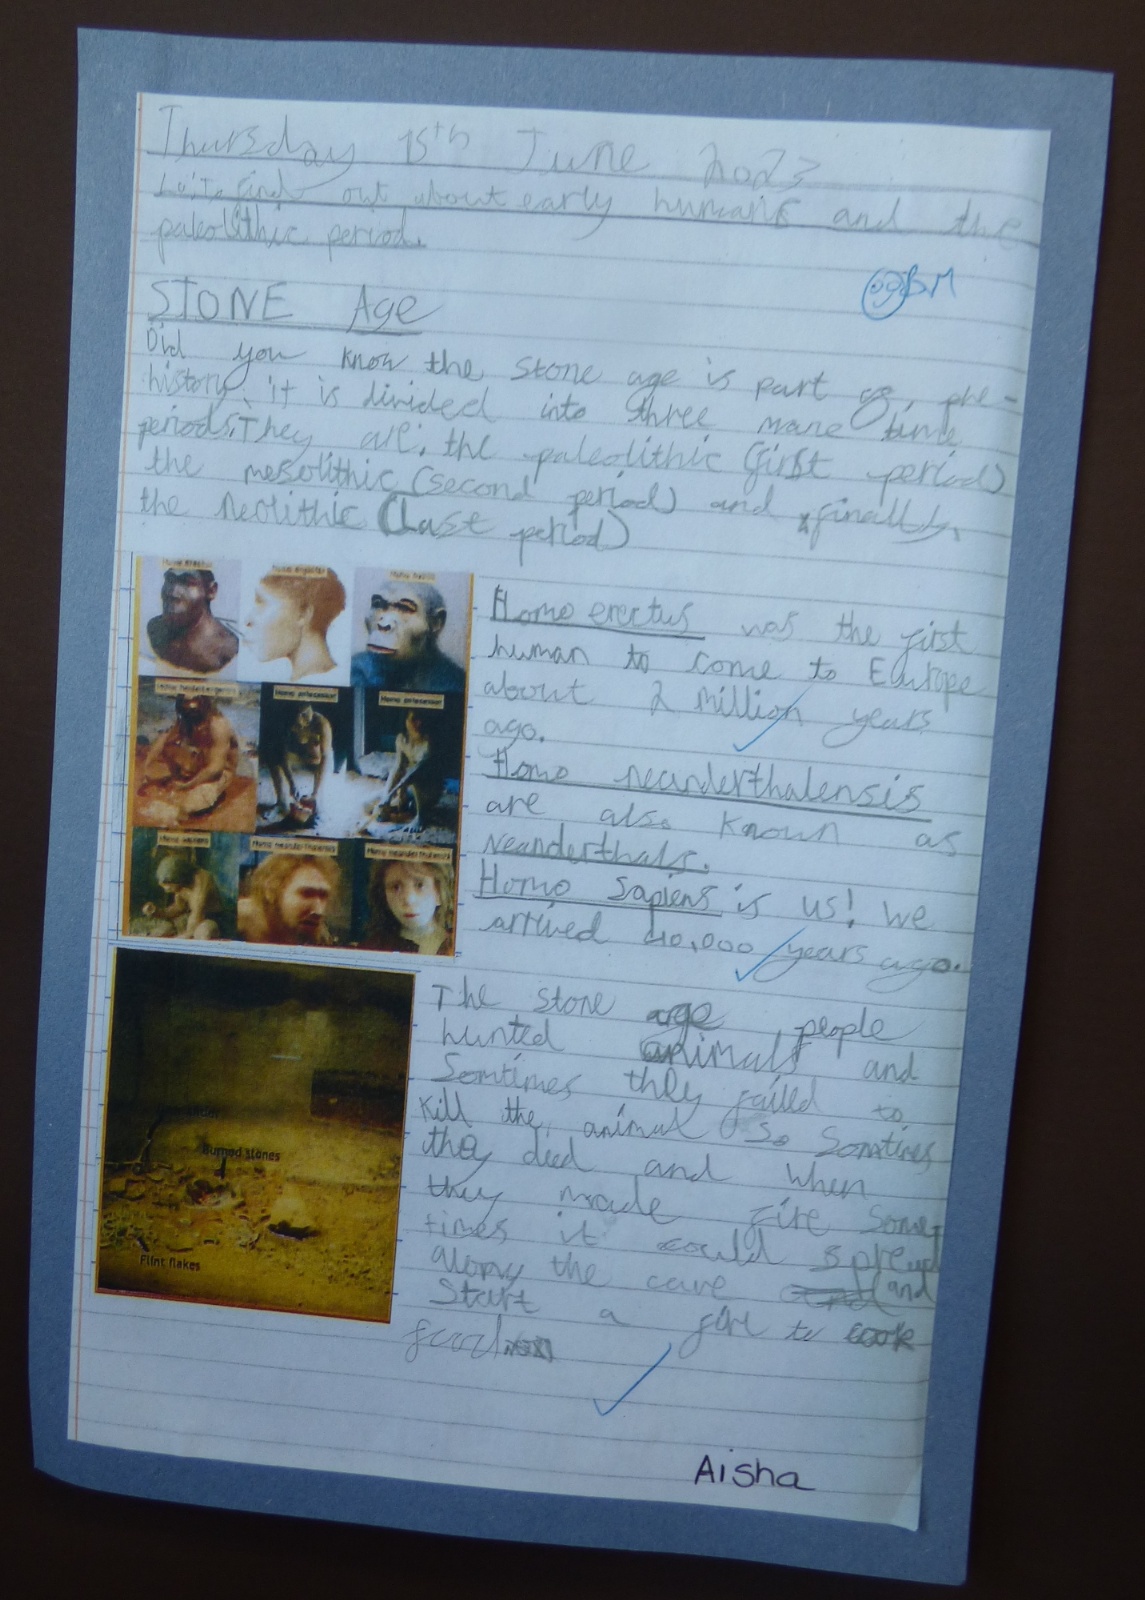 Thursday 15th June 2023
Lo: To find out about early humans and the
paleolithic period.
BM
STONE Age
Did you know the Stone age is part of, pre-
history, it is divided into three mane time
periods. They are: the paleolithic (first period)
the mesolithic (second period) and finally,
the Neolithic (Last period)
Homo erectus
Homo habilis
Homo antecessor
Homo antecessor
Homo neanderthalensis
Homo erectus was the first
human to come to Europe
about 2 million years
ago.
Homo neanderthalensis
are also known as
Neanderthals.
Homo Sapiens is us! We
arrived 40,000 years ago.
The stone age people
hunted animals and
Somtimes they failed to
kill the animal so Somtimes
they died and when
they made fire Some
times it could spread
along the cave and
Start a fire to cook
food
Burned stones
Flint flakes
Aisha